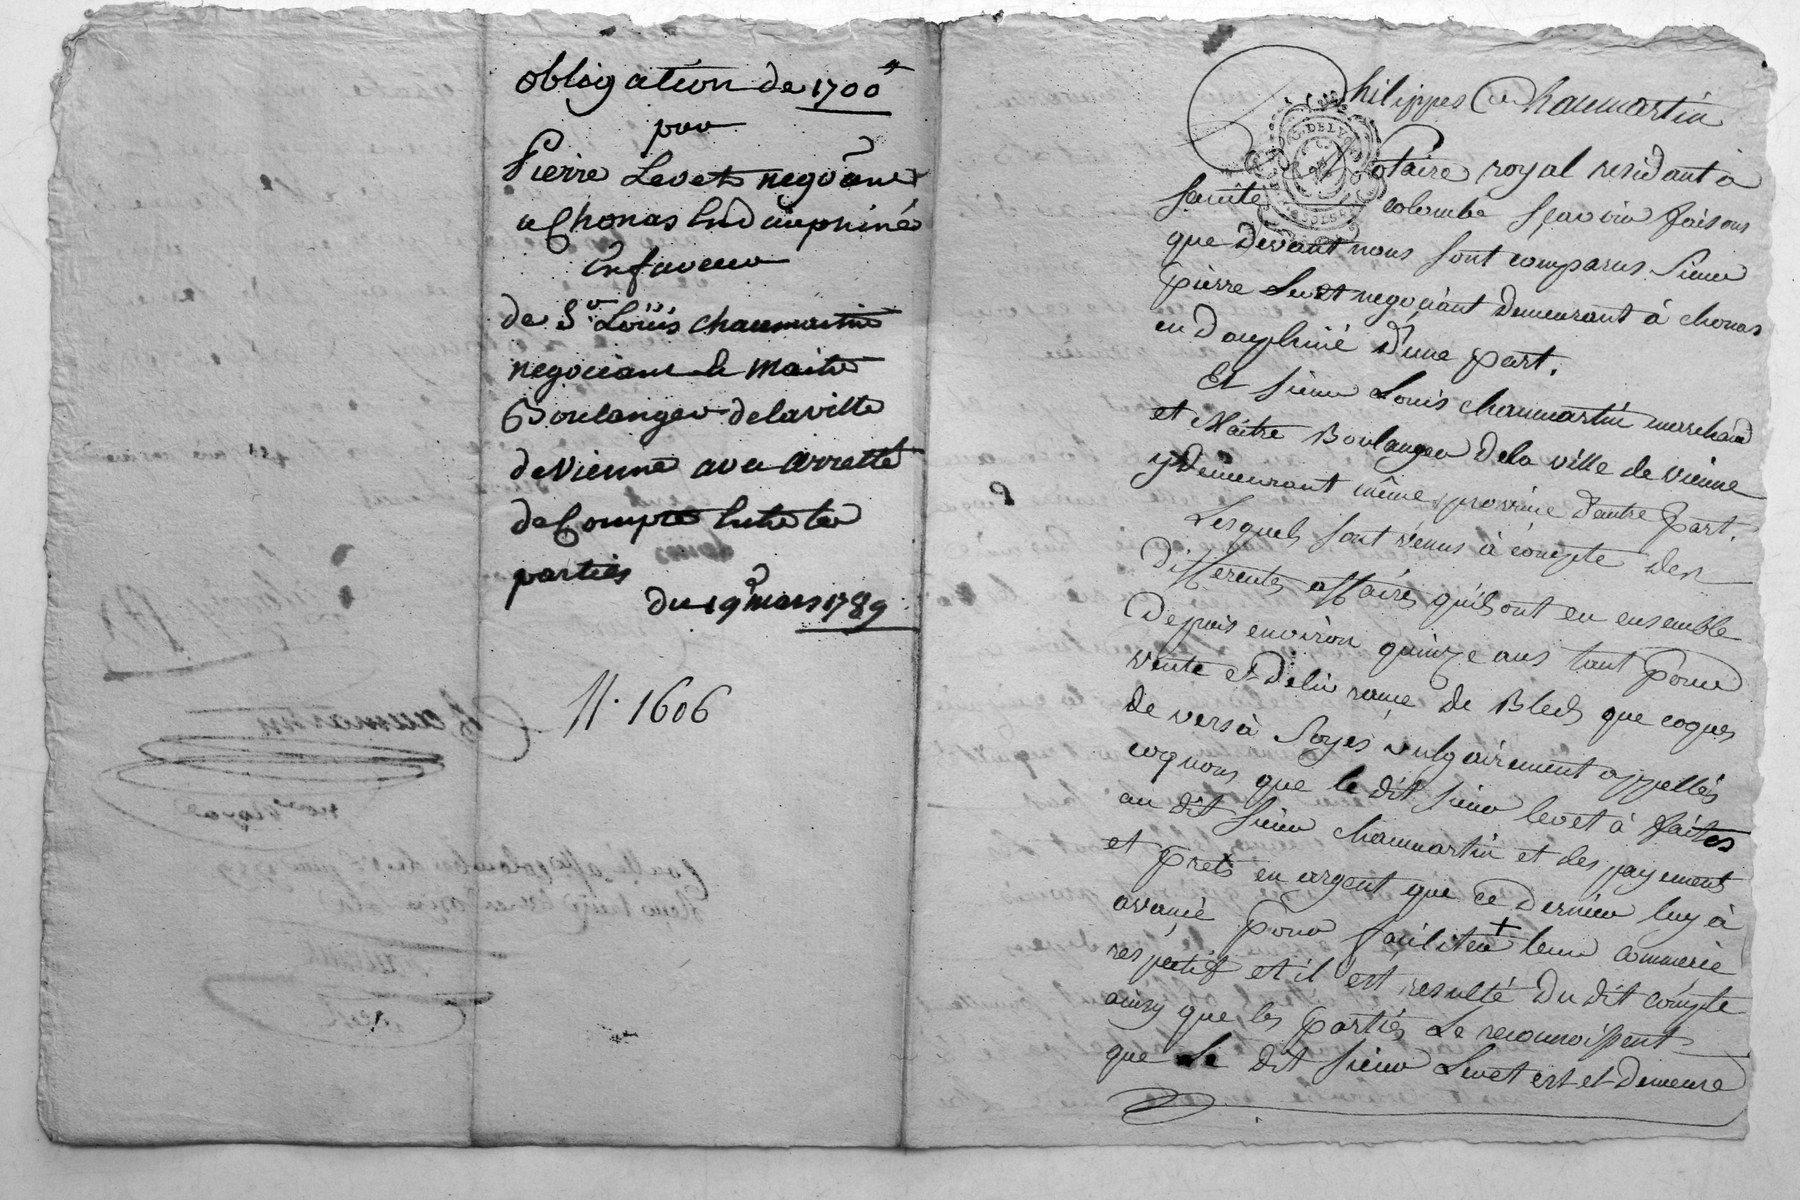 obligation de 1700#
par
Pierre Levet negotiant
a Chonas En dauphiné
En faveur
de Sr Loüis chaumartin
negociant et Maitre
Boulanger de la ville
de vienne avec arretté
de Compte Entre les
parties
du 19e mars 1789
N. 1606
Philippes Chaumartin
Notaire royal residant à
sainte colombe sçavoir faisons
que devant nous sont comparus sieur
pierre Levet negociant demeurant à chonas
en dauphiné d'une part.
Et sieur Louis chaumartin marchand
et Maitre Boulanger de la ville de vienne
y demeurant même province d'autre part.
Lesquels sont venus à compte des
differentes affaires qu'ils ont eu ensemble
depuis environ quinze ans tant pour
vente et delivrance de Bleds que coques
de vers à soyes vulgairement appellés
coquons que le dit sieur levet à faites
au dit sieur chaumartin et des payements
et prets en argent que ce dernier luy à
avancé pour faciliter + leur commerce
respectif et il est resulté du dit compte
ainsy que les parties le reconnoissent
que le dit sieur Levet est et demeure